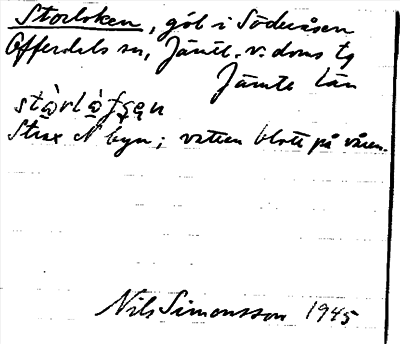 Storloken, göl i Söderåsen
Offerdals sn, Jämtl. v. doms tg
Jämte län
Strax N byn; vatten blott på våren.
Nils Simonsson 1945